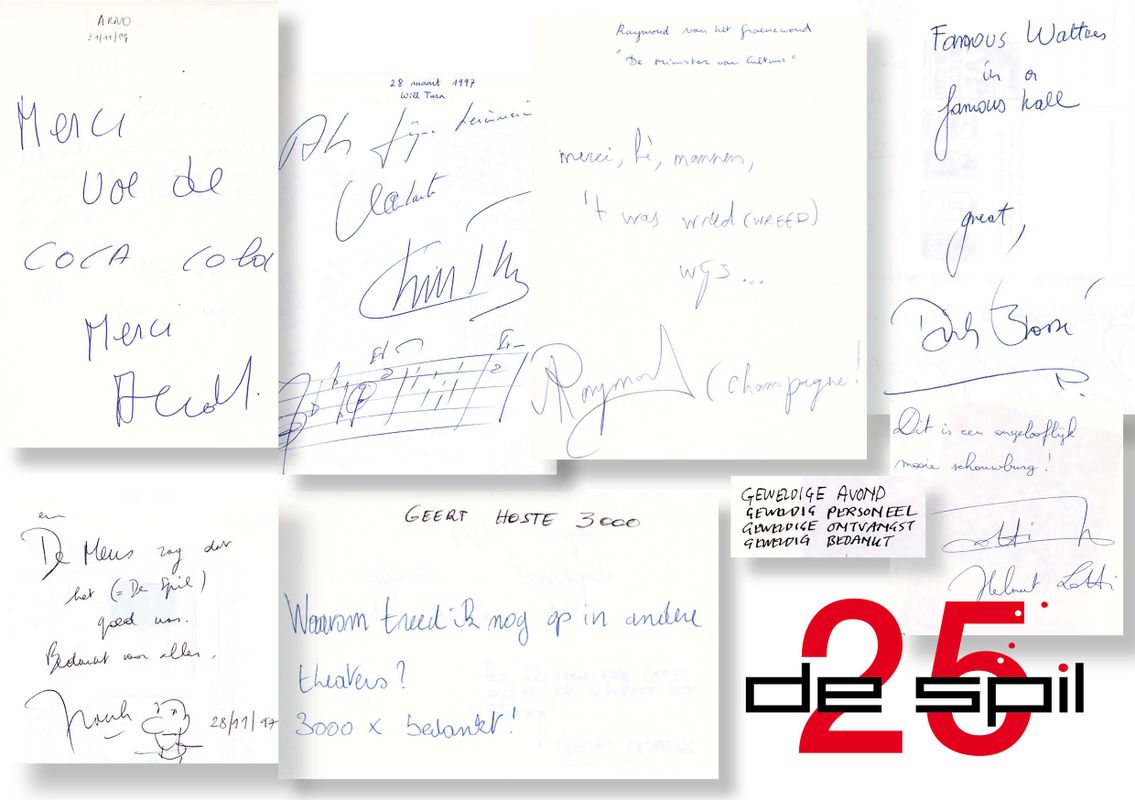 ARNO
21/11/99
Merci
voe de
COCA cola
Merci
28 maart 1997
Will Tura
Raymond van het Groenewoud
"De Minister van Cultuur"
merci, hè, mannen,
't was wried (WREED)
wijs ...
Raymond (champagne!
Famous Waltzes
in a
famous hall
great,
Dirk Brossé
Dit is een ongelooflijk
mooie schouwburg!
Lotti
Helmut Lotti
en
De Mens zag dat
het (= De Spil)
goed was.
Bedankt voor alles.
Frank
28/11/97
GEERT HOSTE 3000
Waarom treed ik nog op in andere
theaters?
3000 x bedankt!
GEWELDIGE AVOND
GEWELDIG PERSONEEL
GEWELDIGE ONTVANGST
GEWELDIG BEDANKT
25
de spil